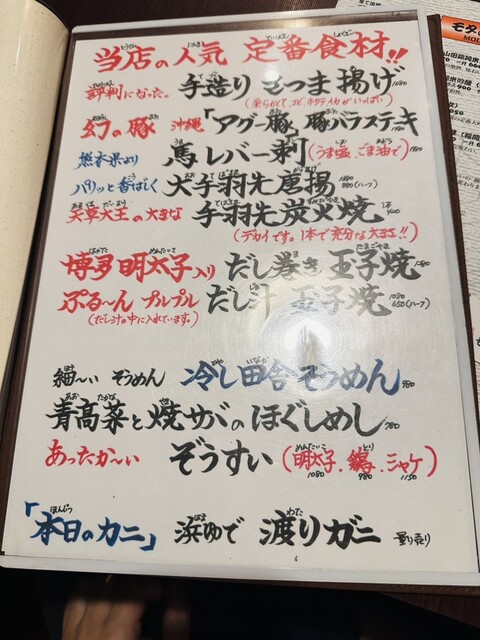 当店の人気 定番食材!!
評判になった。 手造り さつま揚げ
幻の豚 沖縄「アグー豚」豚バラステキ
熊本県より 馬レバー刺(うま塩、ごま油で)
パリッと香ばしく 大手羽先唐揚
天草大王の大きな 手羽先炭火焼
(デカイです。1本で充分な大きさ!!)
博多明太子入り だし巻き玉子焼 1280
ぷる〜んプルプル だし汁 玉子焼 1080 650(ハーフ)
(だし汁の中に入れています。)
細〜い ぞうめん 冷し田舎ぞうめん 980
青髙菜と焼サバのほぐしめし 780
あったか〜い ぞうすい(明太子、鶏、シャケ)
1080 980 1150
「本日のカニ」 浜ゆで 渡りガニ 量り売り